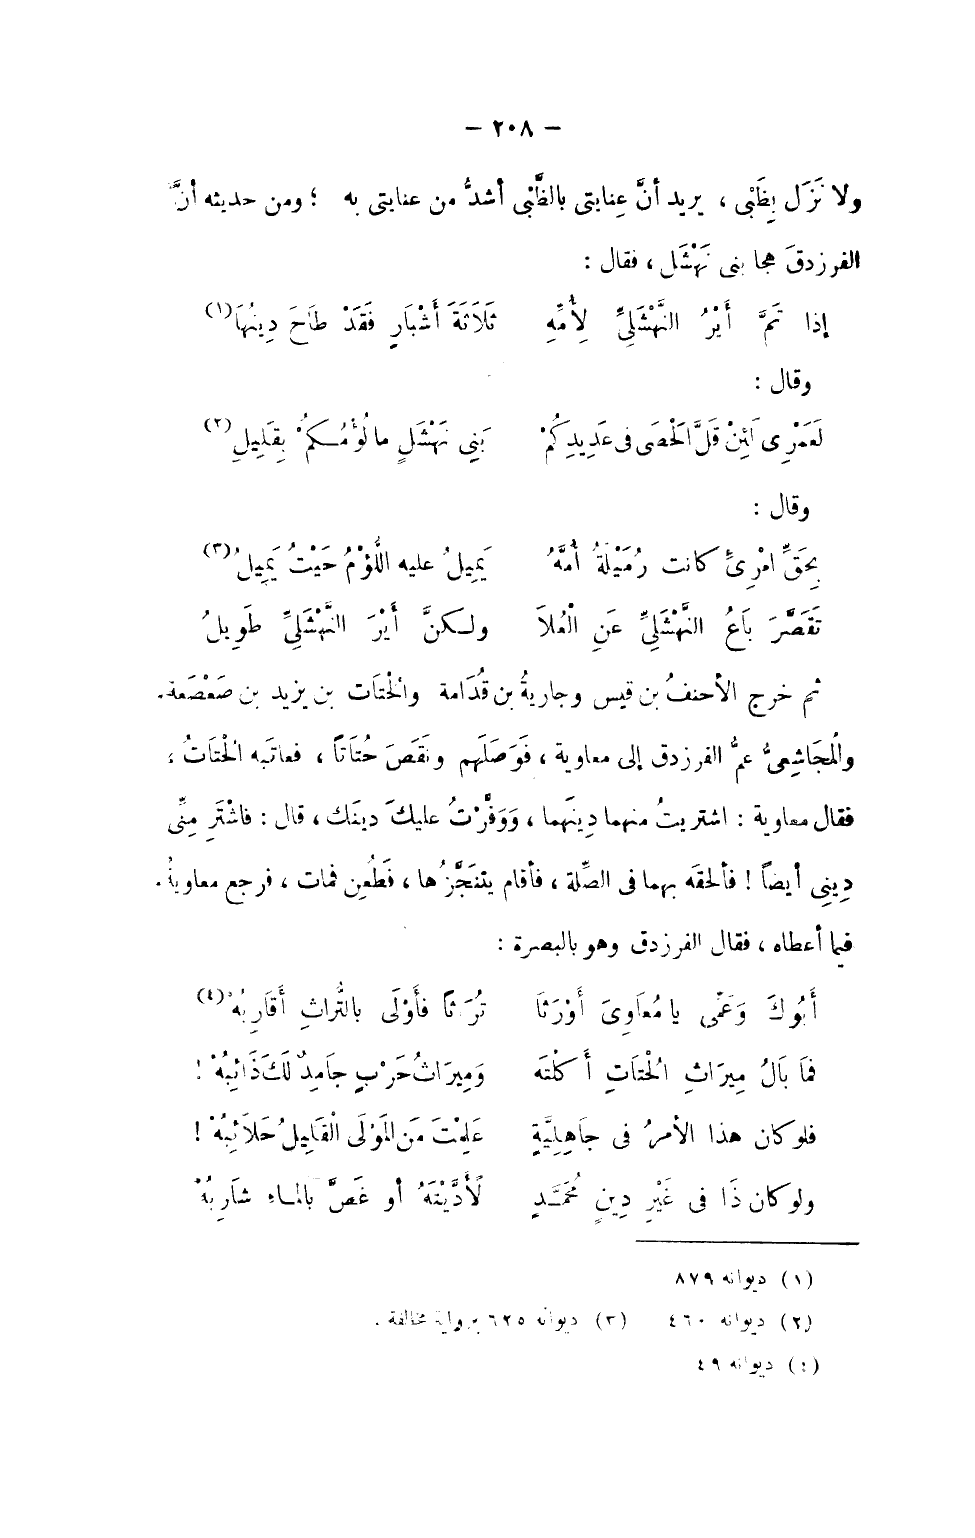 — ٢٠٨ —
ولا نَزَل بِظَبْى ، يريد أنَّ عِنايتى بالظَّبْى أشدُّ من عنايتى به ؛ ومن حديثه أنَّ
الفرزدقَ هجا بنى نَهْشَل ، فقال :
إذا تَمَّ أَيْرُ النَّهْشَلِىِّ لِأُمِّهِ ثَلَاثَةَ أَشْبَارٍ فَقَدْ طَاحَ دِينُهَا (١)
وقال :
لَعَمْرِى لَئِنْ قَلَّ الْحَصَى فى عَدِيدِكُمْ بَنِى نَهْشَلٍ ما لُؤْمُكمُ بِقَلِيلِ (٢)
وقال :
بِحَقِّ امْرِئ كانت رُمَيْلَةُ أُمَّهُ يَمِيلُ عليه اللُّؤْمُ حَيْثُ يَمِيلُ (٣)
تَقَصَّرَ بَاعُ النَّهْشَلِىِّ عَنِ الْعُلاَ ولكنَّ أَيْرَ النَّهْشَلِىِّ طَوِيلُ
ثم خرج الأحنفُ بن قيس وجاريةُ بن قُدَامة والحْتَات بن يزيد بن صَعْصَعة .
والْمجَاشِعىُّ عمُّ الفرزدق إلى معاوية ، فَوَصَلَهم ونَقَصَ حُتَاتًا ، فعاتَبه الْحتَاتُ ،
فقال معاوية : اشتريتُ منهما دِينَهما ، وَوَفَّرْتُ عليكَ دينَك ، قال : فاشْتَرِ مِنِّى
دِينِى أيضاً ! فألحقَه بهما فى الصِّلة ، فأقام يتنَجَّزُها ، فَطُعِن فمات ، فرجع معاويةُ .
فيما أعطاه ، فقال الفرزدق وهو بالبصرة :
أَبُوكَ وَعَمِّى يا مُعَاوِىَ أَوْرَثَا تُرَاثًا فأَوْلَى بالتُّراثِ أَقَارِبُهْ (٤)
فمَا بَالُ مِيرَاثِ الْحُتَاتِ أَكَلْتَه وَمِيرَاثُ حَرْبٍ جَامِدٌ لَكَ ذَائِبُهْ !
فلو كان هذا الأمرُ فى جَاهِلِيَّةٍ عَلِمْتَ مَنِ المَوْلَى الْقَلِيلُ حَلاَئِبُهْ !
ولو كان ذَا فى غَيْرِ دِينِ مُحَمَّدٍ لَأَدَّيْتَهُ أو غَصَّ بالماء شَارِبُهْ
(١) ديوانه ٨٧٩
(٢) ديوانه ٤٦٠ (٣) ديوانه ٦٢٥ برواية مخالفة .
(٤) ديوانه ٤٩